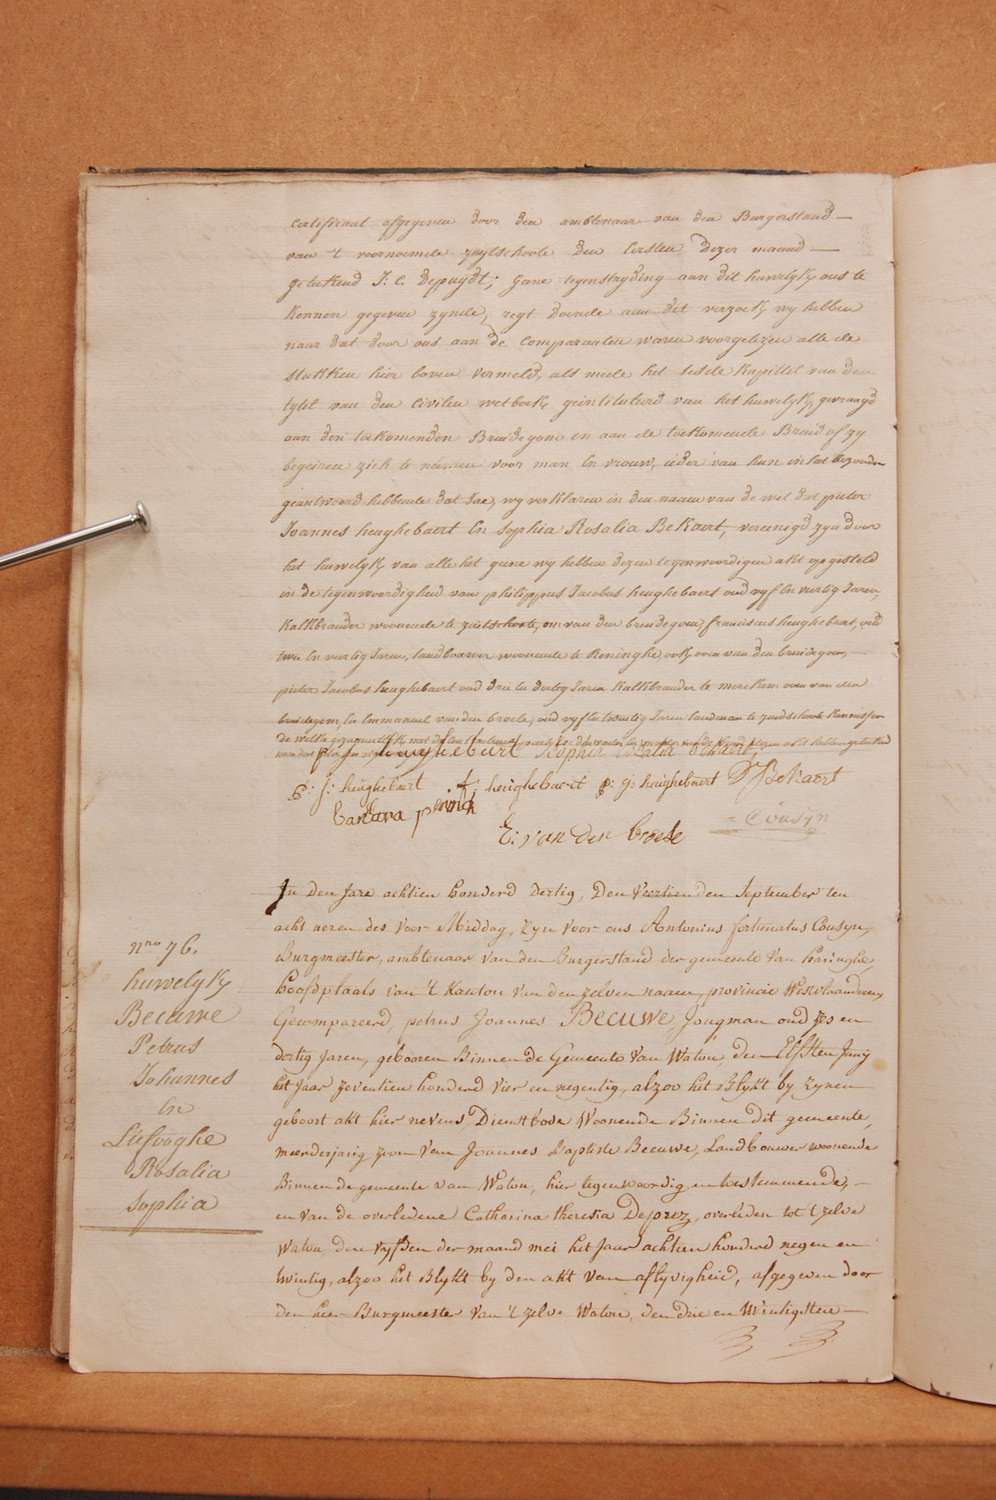 certificaat afgegeven door den ambtenaar van den Burgerstand
van 't voornoemde zuytschoote den eersten dezer maand
geteekend J. C. Depuydt; geene tegenstryding aan dit huwelyk ons te
kennen gegeven zynde, regt doende aan dit verzoek, wy hebben
naar dat door ons aan de comparanten waren voorgelezen alle de
stukken hier boven vermeld, als mede het seste kapittel van den
tytel van den civilen wetboek, geintituleerd van het huwelyk, gevraagd
aan den toekomenden Bruidegom en aan de toekomende Bruid of zy
begeiren zich te nemen voor man en vrouw, ieder van hun in het bezonder
geantwoord hebbende dat Jae, wy verklaren in den naam van de wet dat pieter
Joannes heughebaert en Sophia Rosalia Bekaert, vereenigd zyn door
het huwelyk van alle het gene wy hebben dezen tegenwoordigen akt opgesteld
in de tegenwoordigheid van philippus Jacobus heughebaert oud vyf en veertig Jaren,
kalkbrander woonende te zuitschoote, om van den bruidegom, franciscus heughebaert, oud
twee en veertig Jaren, landbouwer woonende te Reninghe, ook oom van den bruidegom,
pieter Jacobus heughebaert oud drie en dertig Jaren kalkbrander te merckem oom van den
bruidegom, en Emmanuel van den broele, oud vyf en twintig Jaren landman te zuidschoote
p: j: heughebaert Sophie
p: j: heughebaert f: heughebaert p: j: heughebaert Bekaert
barbara
Cousyn
E: van den broele
In den Jare achtien honderd Dertig, Den Veertienden September ten
acht uren des voor Middag, zyn voor ons Antonius fortunatus Cousyn,
Burgmeester, ambtenaar van den Burgerstand der gemeente van haringhe,
hoofdplaats van 't kanton van den zelven naam, provincie Westvlaanderen,
Gecompareerd, petrus Joannes Becuwe Jongman oud zes en
dertig Jaren, gebooren Binnen de Gemeente van Watou, den Elfsten Juny
het Jaar zeventien honderd vier en negentig, alzoo het Blykt by zynen
geboort akt hier nevens Dienstbode Woonende Binnen dit gemeente,
meerderjarig zoon van Joannes Baptiste Becuwe, Landbouwer woonende
Binnen de gemeente van Watou, hier tegenwoordig en toestemmende,
en van de overledene Catharina theresia Dejorez, overleden tot 't zelve
Watou den vyfden der maand mei het Jaar achtien honderd negen en
twintig, alzoo het Blykt by den akt van aflyvigheid, afgegeven door
den heer Burgmeester van 't zelve Watou, den drie en twintigsten
nro 76.
huwelyk
Becuwe
Petrus
Johannes
En
Liefooghe
Rosalia
Sophia